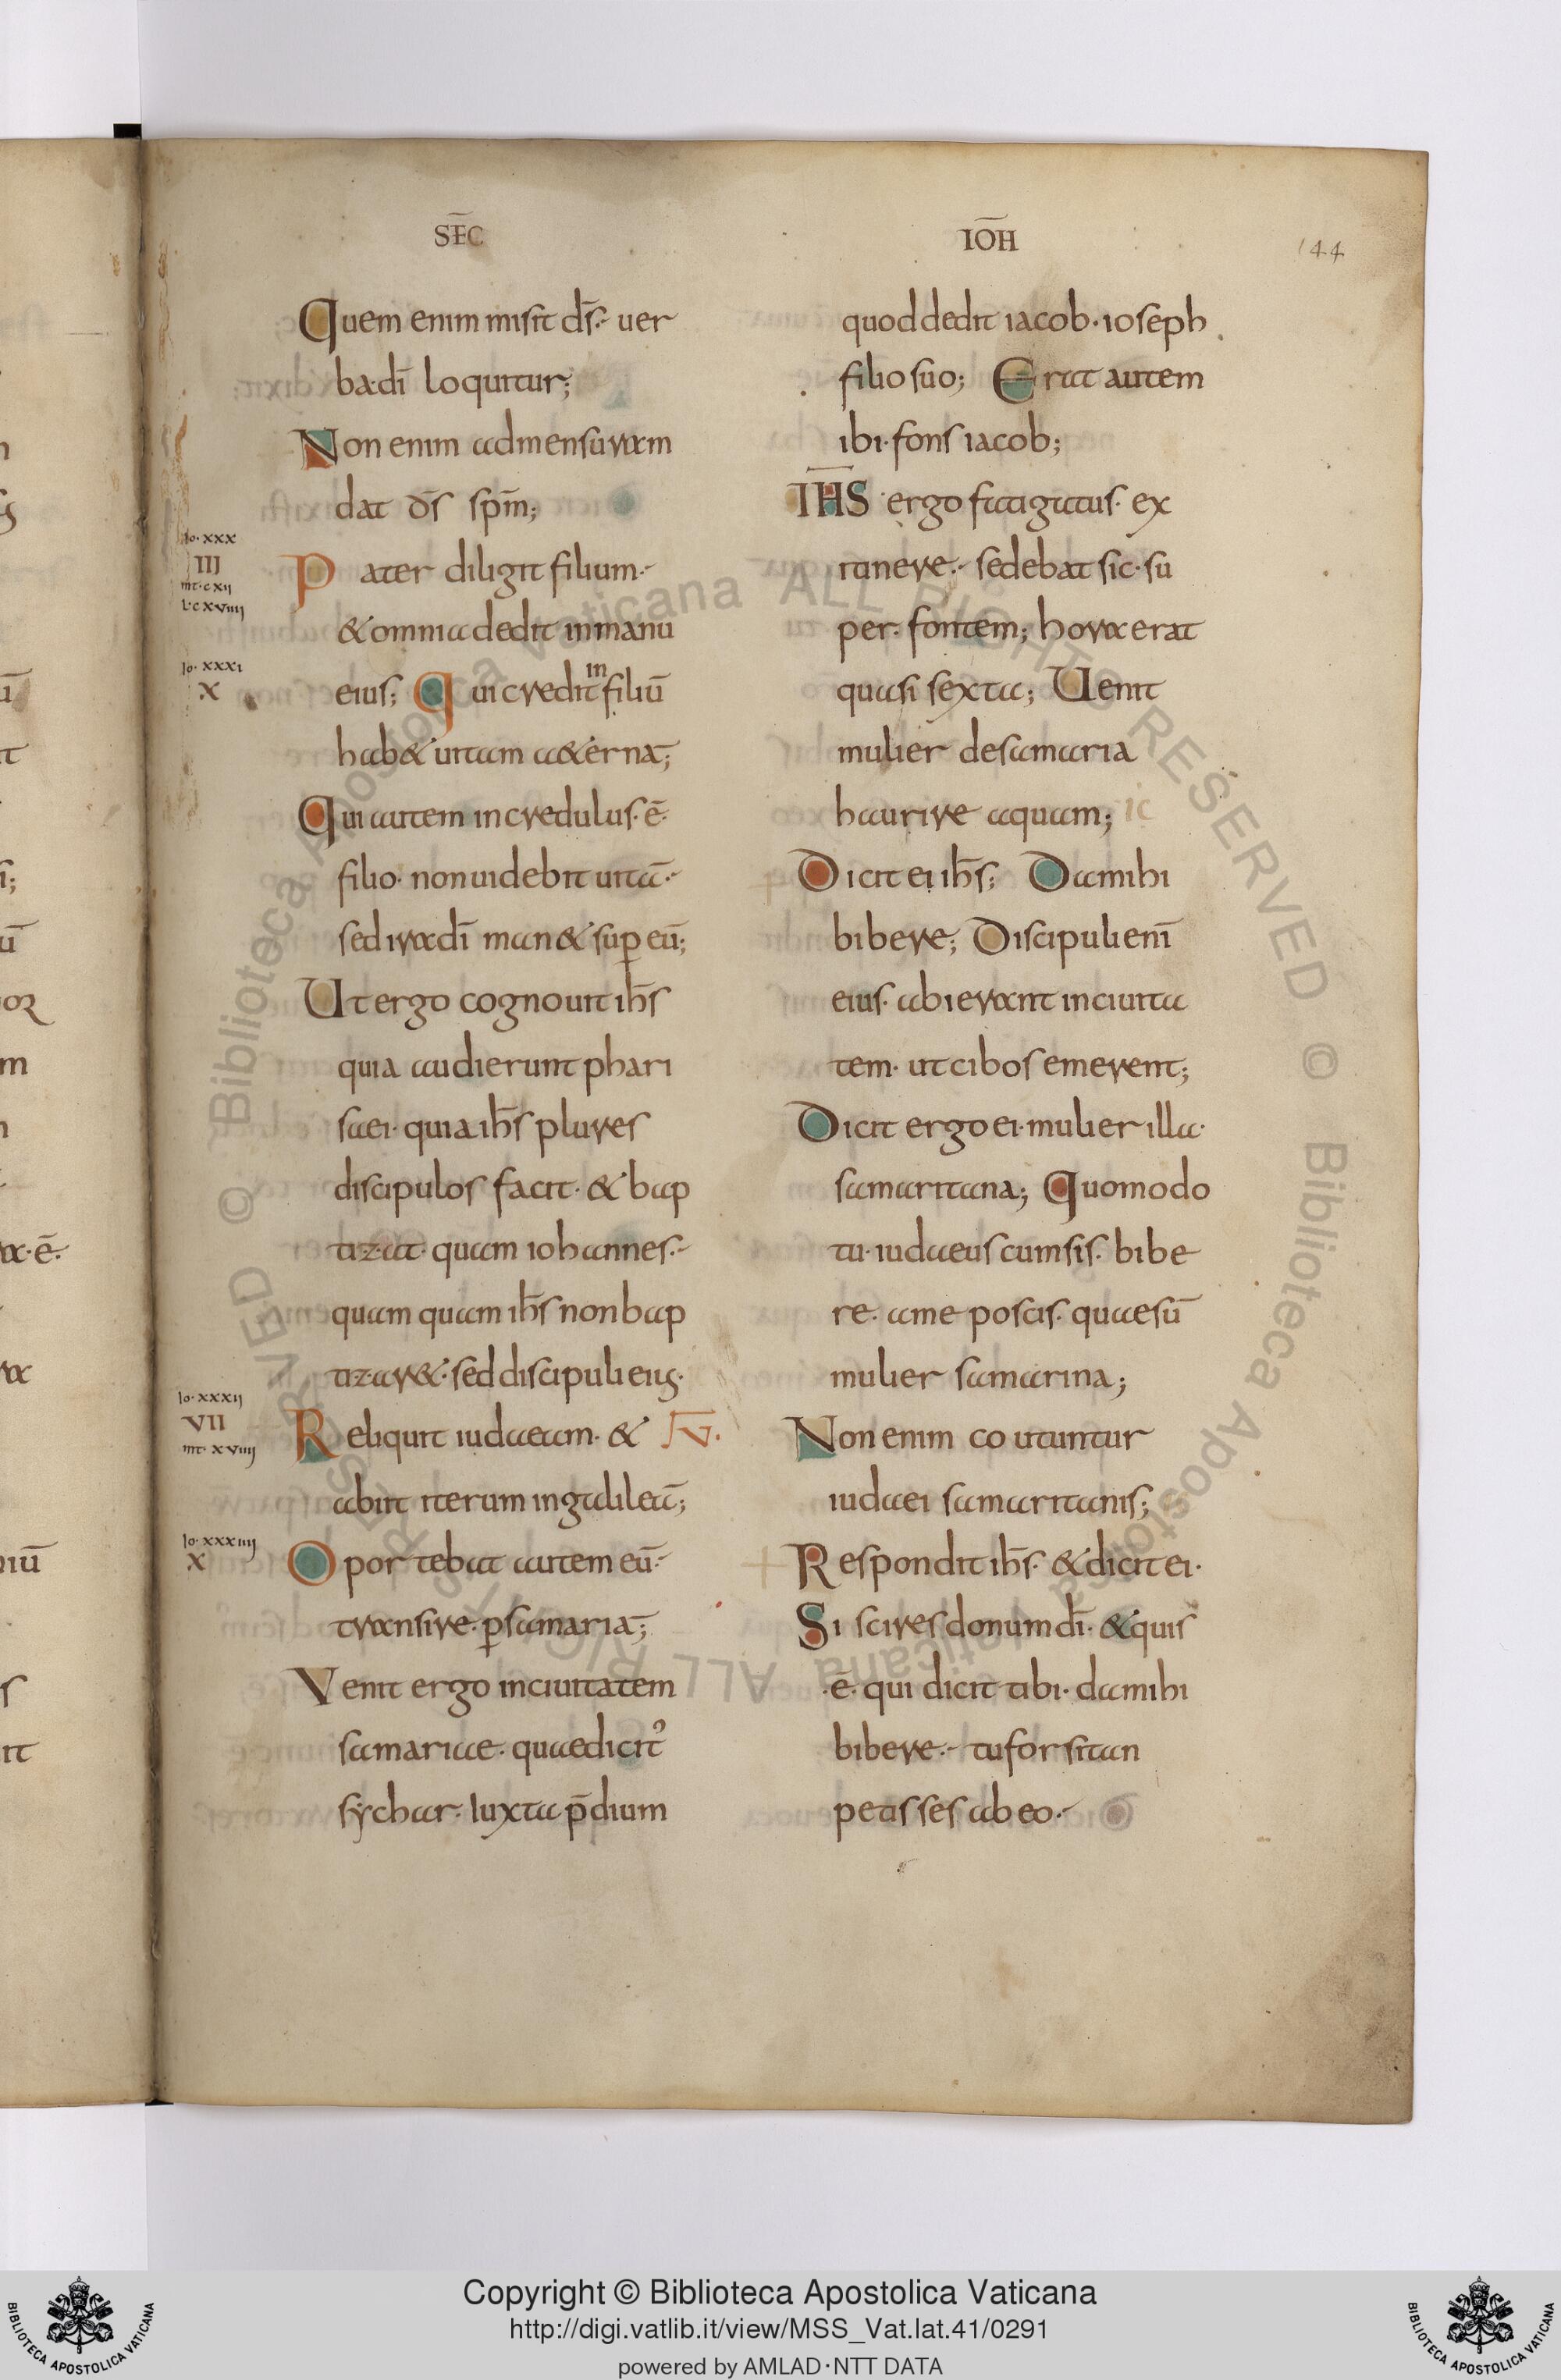 SEC̅
IO̅H
144
Quem enim misit d̅s·- uer
ba·di̅ loquitur;
Non enim admensuram
dat d̅s sp̅m;
Io·xxx
III
mt·cxii
l·cxviiii
Pater diligit filium·-
& omnia dedit inmanu
Io·xxxi
X
eius; Qui credit in filiu̅
hab& uitam a&erna̅;
Qui autem incredulus·e̅·
filio· non uidebit uita̅·-
sed ira di̅ man& sup̱ eu̅;
Ut ergo cognouit ih̅s
quia audierunt phari
saei· quia ih̅s plures
discipulos facit· & bap
tizat· quam iohannes·-
quam quam ih̅s non bap
tizar&· sed discipuli eiꝰ·
Io·xxxii
VII
mt·xviiii
Reliquit iudaeam· &
abiit iterum in galilea̅;
Io·xxxiiii
X
Oportebat autem eu̅·-
transire· p̱ samaria̅;
Venit ergo inciuitatem
samariae· quae dicitꝰ
sychar· Iuxta p̅dium
quod dedit iacob· ioseph
filio suo; Erat autem
ibi· fons iacob;
IH̅S ergo fatigatus· ex
itinere·- sedebat sic· su
per· fontem; hora erat
quasi sexta; Uenit
mulier desamaria
haurire aquam;
Dicit ei ih̅s; Da mihi
bibere; Discipuli eni̅
eius· abierant inciuita
tem· ut cibos emerent;
Dicit ergo ei· mulier illa·
samaritana; Quomodo
tu· iudaeus cum sis· bibe
re· a me poscis· quae su̅
mulier samarina;
Non enim coutuntur
iudaei samaritanis;
Respondit ih̅s· & dicit ei·
Si scires donum di̅· & quis
·e̅· qui dicit tibi· da mihi
bibere·- tu forsitan
petisses ab eo·-
© Biblioteca Apostolica Vaticana ALL RIGHTS RESERVED © Biblioteca Apostolica Vaticana ALL RIGHTS RESERVED
Copyright © Biblioteca Apostolica Vaticana
http://digi.vatlib.it/view/MSS_Vat.lat.41/0291
powered by AMLAD·NTT DATA
BIBLIOTECA APOSTOLICA VATICANA
BIBLIOTECA APOSTOLICA VATICANA